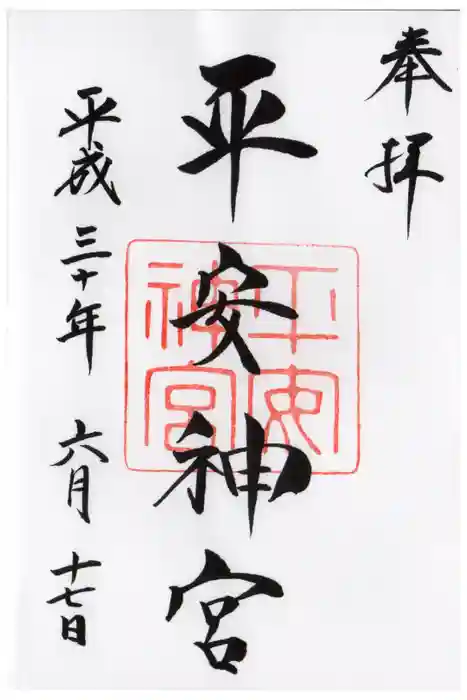 奉拝
平安神宮
平安神宮
平成三十年六月十七日